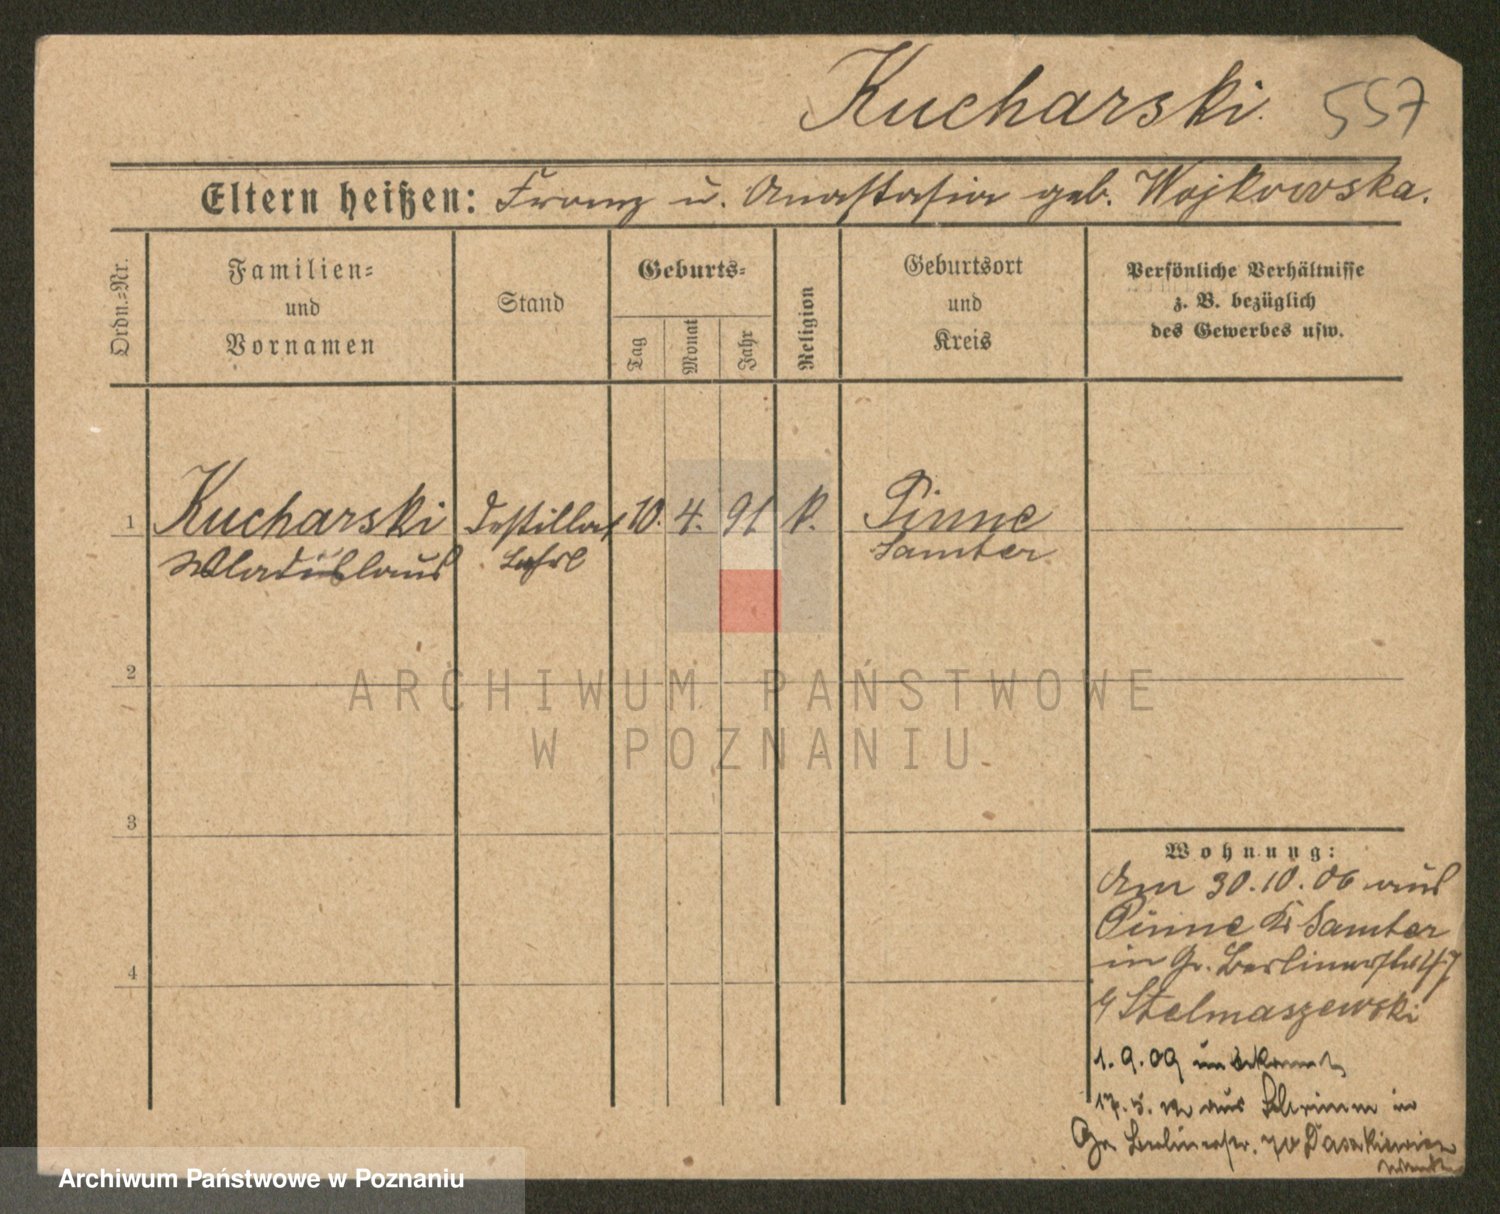 Kucharski. 557
Eltern heißen: Franz u. Anastasia geb. Wojkowska.
Ordn.=Nr.
Familien=
und
Vornamen
Stand
Geburts=
Tag
Monat
Jahr
Religion
Geburtsort
und
Kreis
Persönliche Verhältnisse
z. B. bezüglich
des Gewerbes usw.
1 Kucharski Destillat 10. 4. 91 k. Pinne
Wladislaus Lehrl Samter
2
3
4
ARCHIWUM PAŃSTWOWE
W POZNANIU
Wohnung:
Am 30.10.06 aus
Pinne Kr Samter
in Gr. Berlinerstr
Stelmaszewski
1.9.09 unbekannt
aus Schrimm in
Gr Berlinerstr.
Archiwum Państwowe w Poznaniu